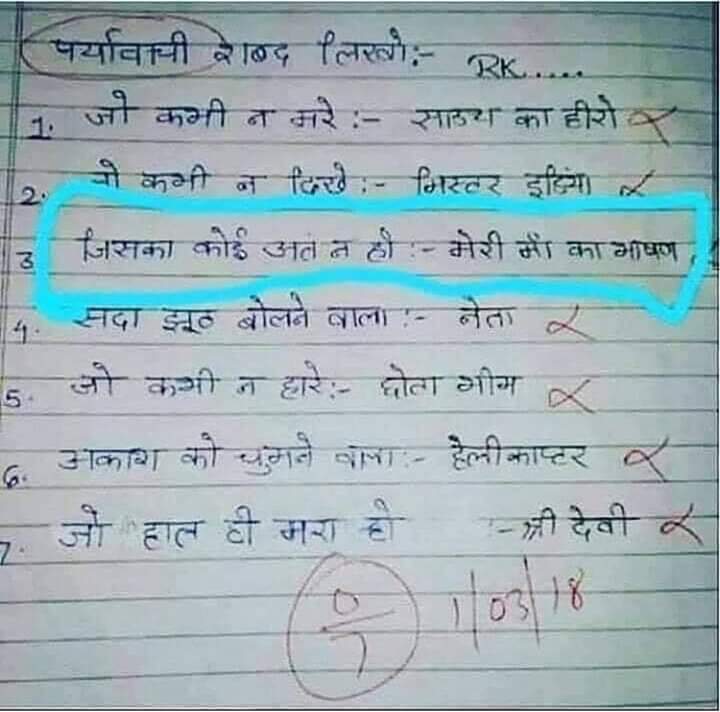 पर्यावाची शब्द लिखो:-
RK.....
1. जो कभी न मरे :- साउथ का हीरो
2. जो कभी न दिखे :- मिस्टर इंडिया
3 जिसका कोई अतं न हो :- मेरी माँ का भाषण
4. सदा झूठ बोलने वाला :- नेता
5. जो कभी न हारे:- छोटा भीम
6. आकाश को चुमने वाला :- हेलीकाप्टर
7. जो हाल ही मरा हो :- श्री देवी
0/7 1/03/18